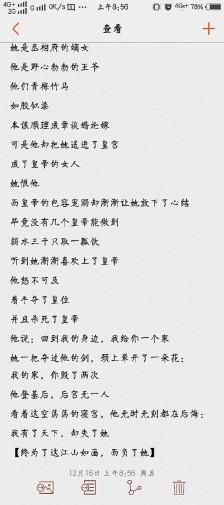 4G+ 2G G 0K/s 上午8:56 4G+ 78%
查看
她是丞相府的嫡女
他是野心勃勃的王爷
他们青梅竹马
如胶似漆
本该顺理成章谈婚论嫁
可是他却把她送进了皇宫
成了皇帝的女人
她恨他
而皇帝的包容宠溺却渐渐让她放下了心结
毕竟没有几个皇帝能做到
弱水三千只取一瓢饮
听到她渐渐喜欢上了皇帝
他怒不可及
着手夺了皇位
并且杀死了皇帝
他说：回到我的身边，我给你一个家
她一把夺过他的剑，颈上晕开了一朵花：
我的家，你毁了两次
他登基后，后宫无一人
看着这空荡荡的寝宫，他无时无刻都在后悔：
我有了天下，却失了她
【终为了这江山如画，而负了她】
12月16日 上午8:56 周五